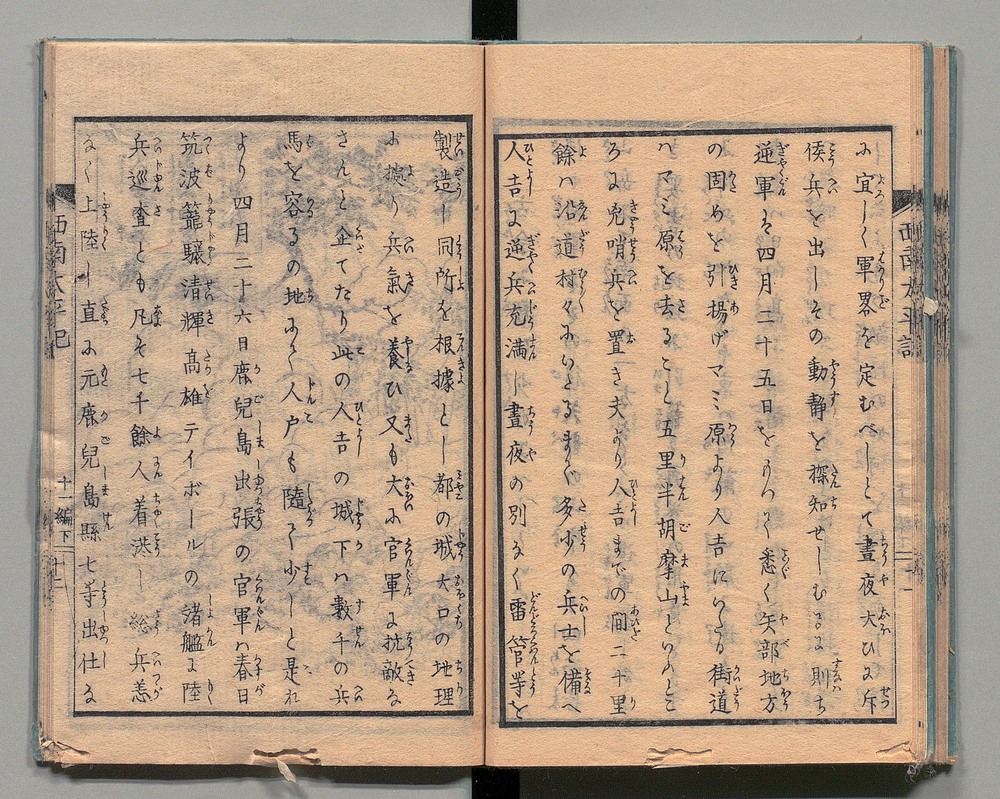 西南太平記
に宜しく軍畧を定むべしとて晝夜大ひに斥
候兵を出しその動静を探知せしむるに則ち
逆軍は四月二十五日をもつて悉く矢部地方
の固めを引揚げマミ原より人吉にいたる街道
ハマミ原を去ること五里半胡摩山といふとこ
ろに兇哨兵を置き夫より人吉までの間二十里
餘ハ沿道村々にいたるまで多少の兵士を備へ
人吉に逆兵充満し晝夜の別なく雷管等を
製造し同所を根據とし都の城大口の地理
に據り兵氣を養ひ又も大に官軍に抗敵な
さんと企てたり此の人吉の城下ハ數千の兵
馬を容るの地にて人户も隨て少しと是れ
より四月二十六日鹿兒島出張の官軍ハ春日
筑波龍驤清輝高雄テイボールの諸艦に陸
兵巡査とも凡そ七千餘人着港し総兵恙
なく上陸し直に元鹿兒島縣七等出仕な
西南太平記
十一編下
十二